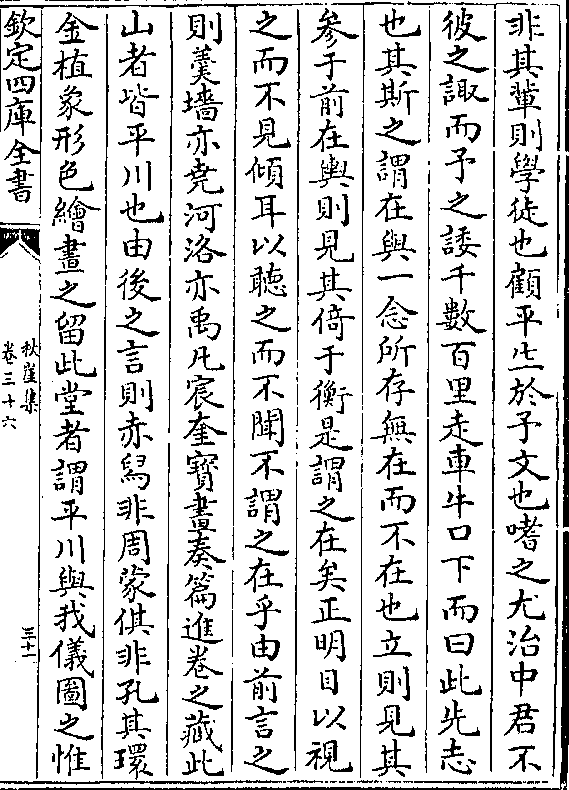 非其輩則學徒也顧平生於予文也嗜之尤治中君不
彼之諏而予之諉千數百里走車牛口下而曰此先志
也其斯之謂在與一念所存無在而不在也立則見其
參于前在輿則見其倚于衡是謂之在矣正明目以視
之而不見傾耳以聽之而不聞不謂之在乎由前言之
則羹墻亦堯河洛亦禹凡宸奎寳畫奏篇進卷之藏此
山者皆平川也由後之言則赤舄非周蒙倛非孔其環
金植象形色繪畫之留此堂者謂平川與我儀圖之惟
欽定四庫全書
秋崖集
卷三十六
三十一